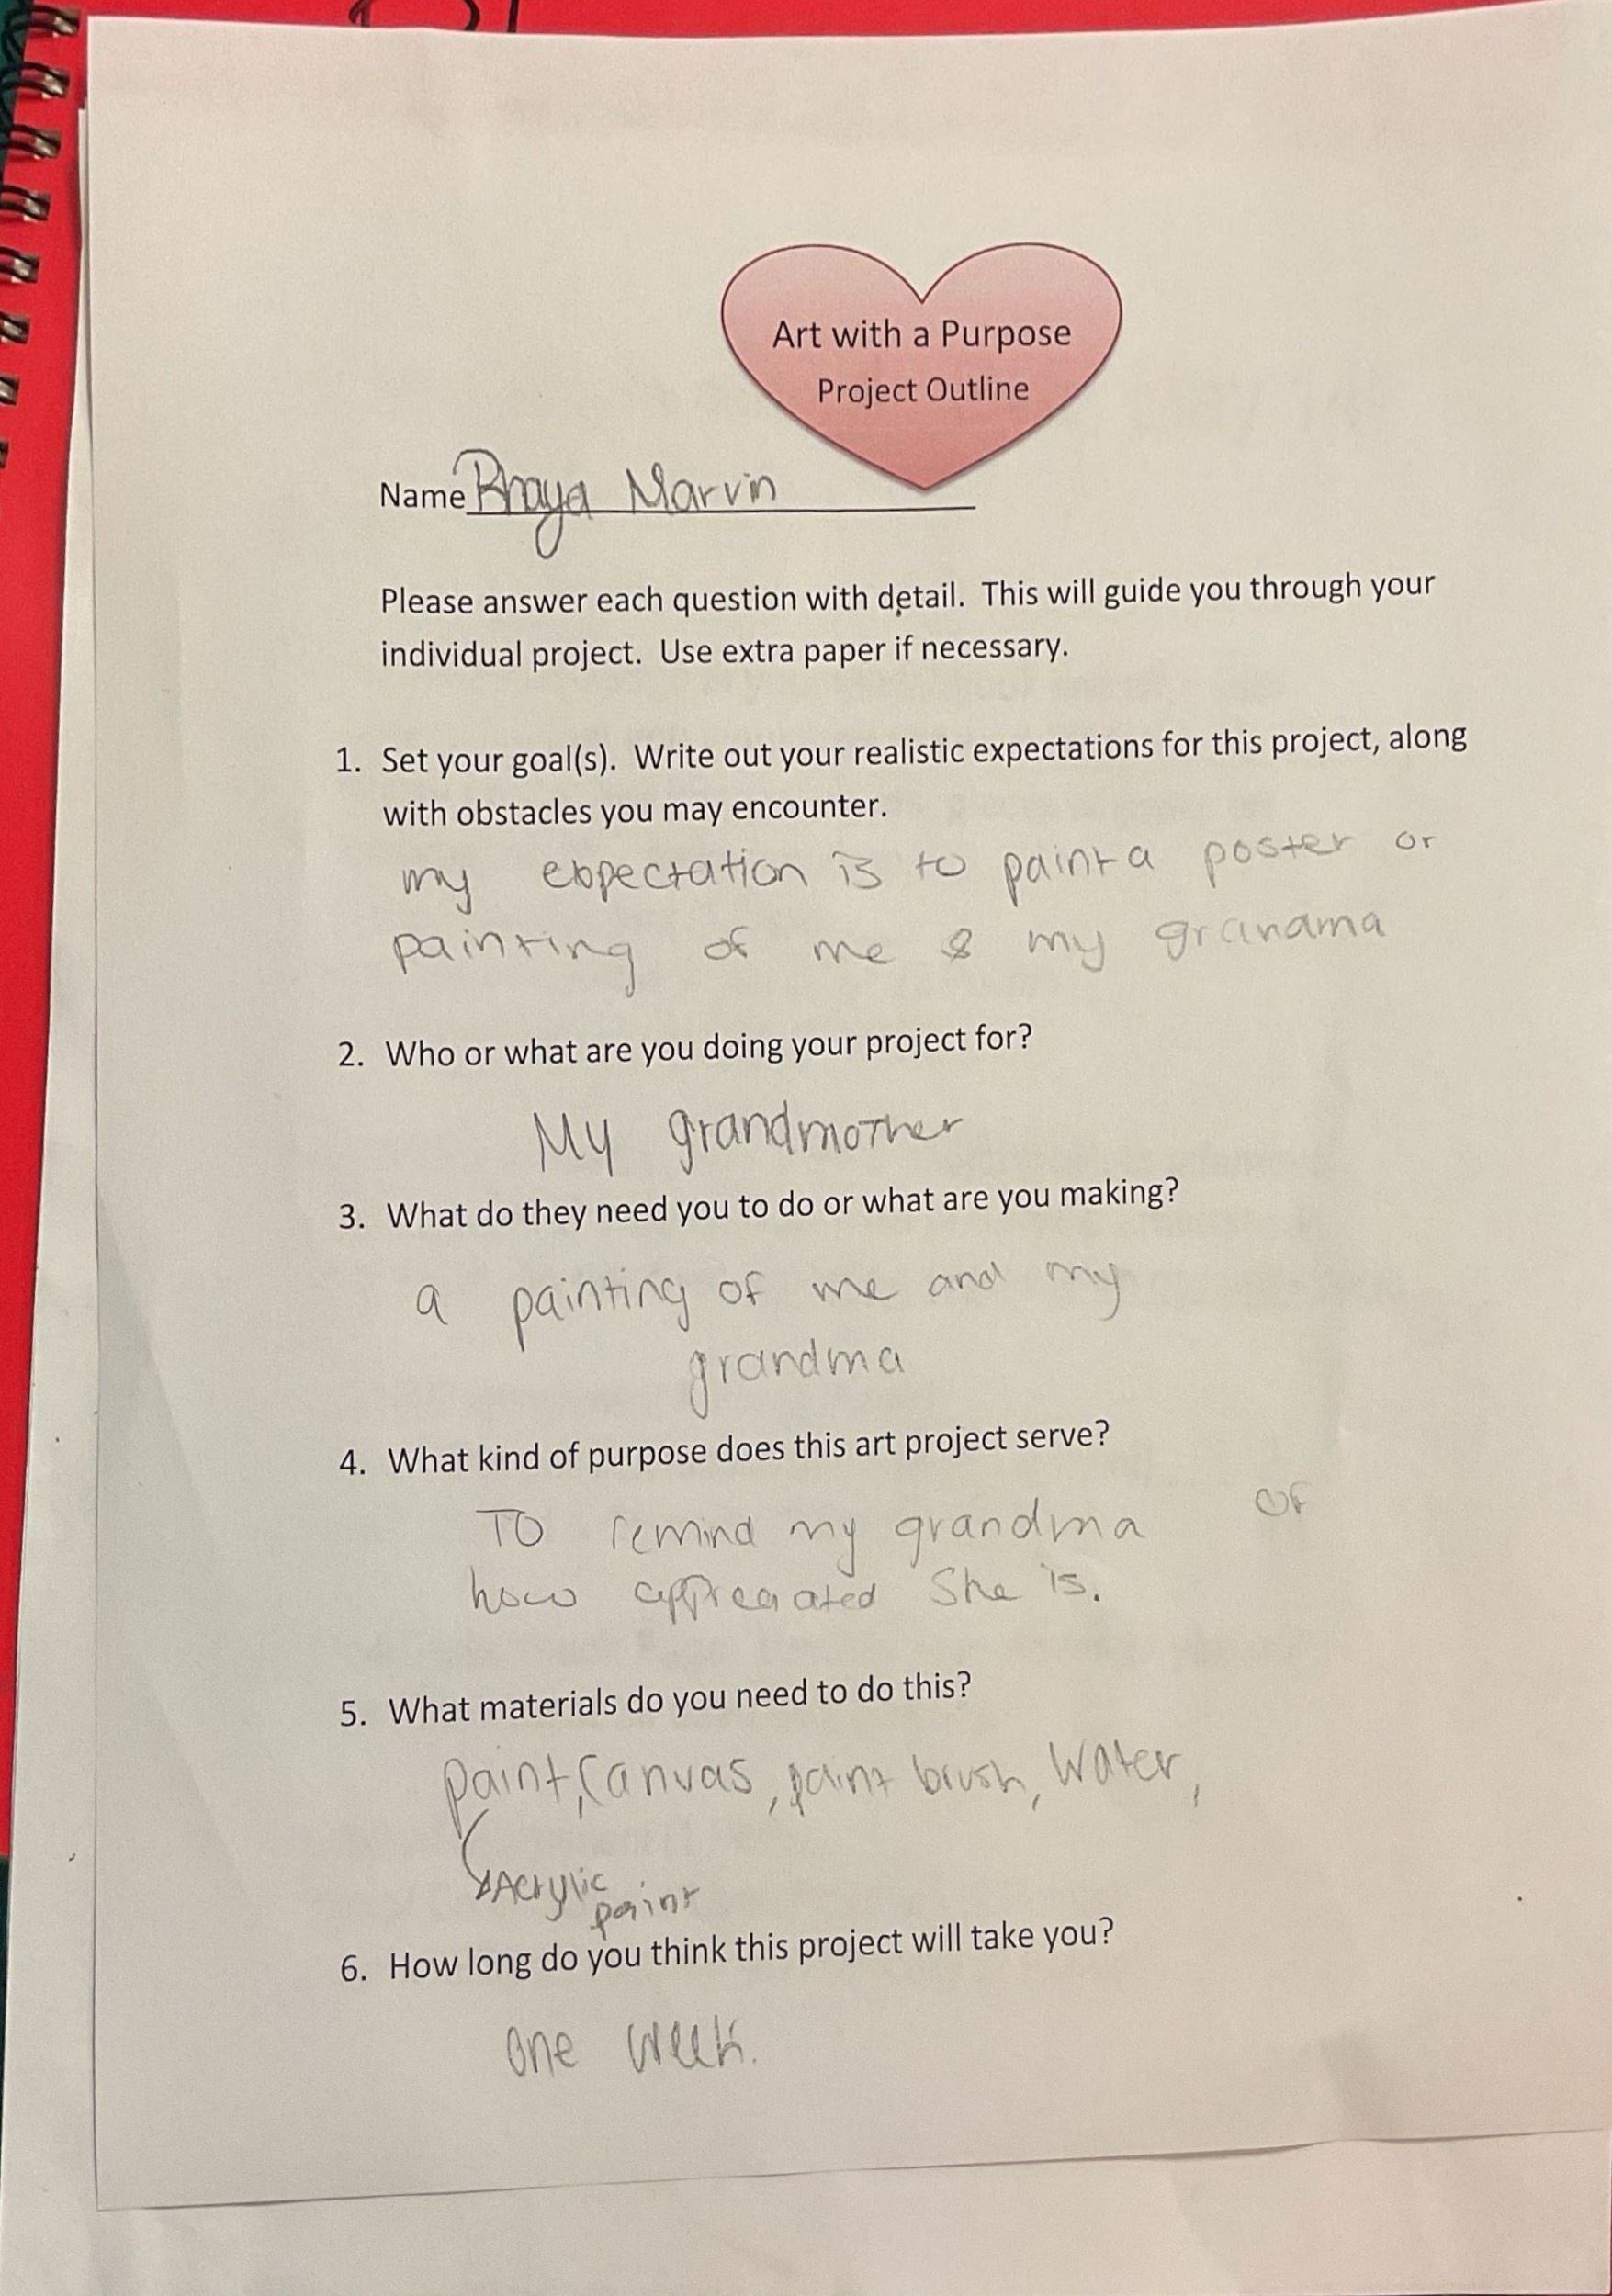 Art with a Purpose
Project Outline
Name Rhaya Marvin
Please answer each question with detail. This will guide you through your
individual project. Use extra paper if necessary.
1. Set your goal(s). Write out your realistic expectations for this project, along
with obstacles you may encounter.
my expectation is to paint a poster or
painting of me & my grandma
2. Who or what are you doing your project for?
My grandmother
3. What do they need you to do or what are you making?
a painting of me and my
grandma
4. What kind of purpose does this art project serve?
To remind my grandma of
how appreciated She is.
5. What materials do you need to do this?
paint, Canvas, paint brush, Water,
Acrylic
paint
6. How long do you think this project will take you?
One week.